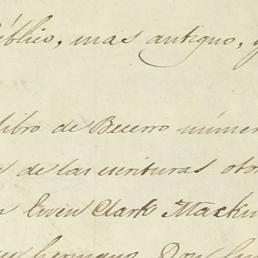 público, mas antiguo, y
libro de Becerro núme
de las escrituras oto
Ewen Clark Mackin
germano Don